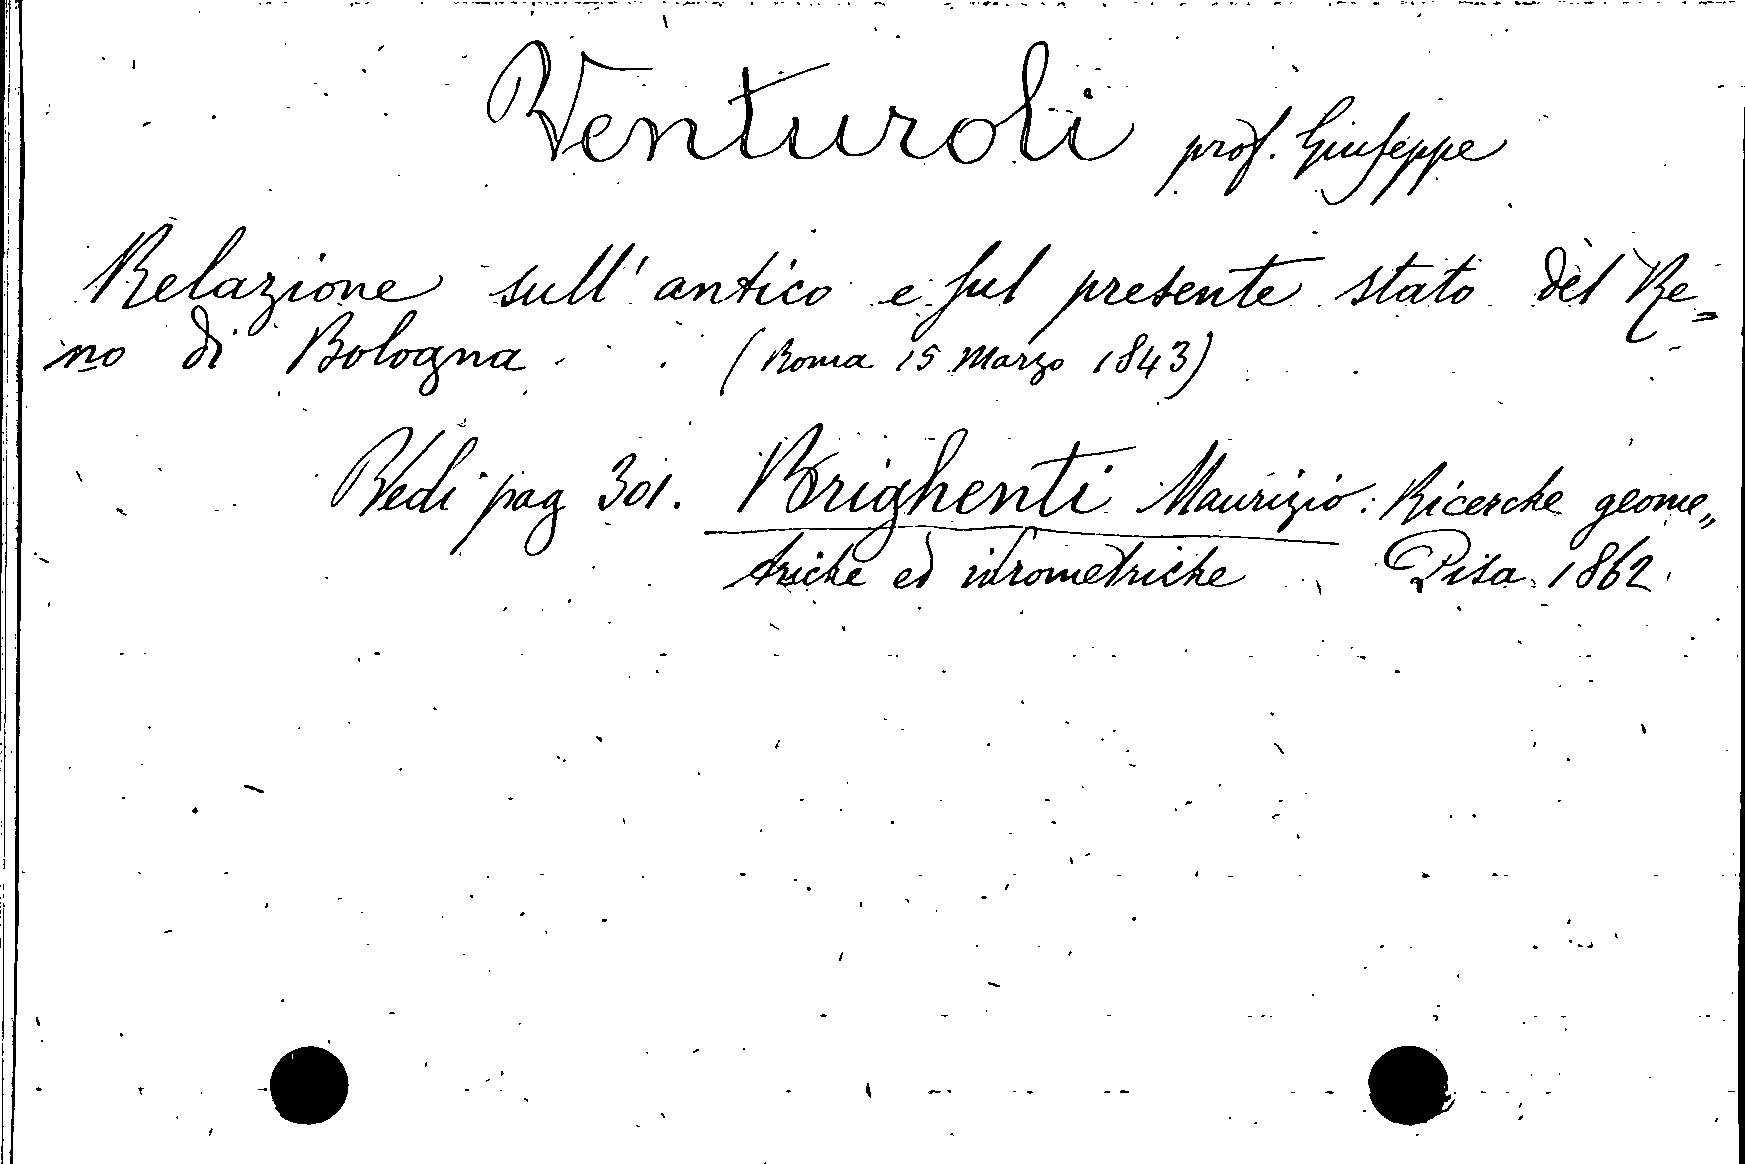 Venturoli prof. Giuseppe
Relazione sull' antico e sul presente stato del Re=
no di Bologna . . . (Roma 15 Marzo 1843)
Vedi pag 301. Brighenti Maurizio: Ricerche geome„
triche ed idrometriche Pisa 1862.